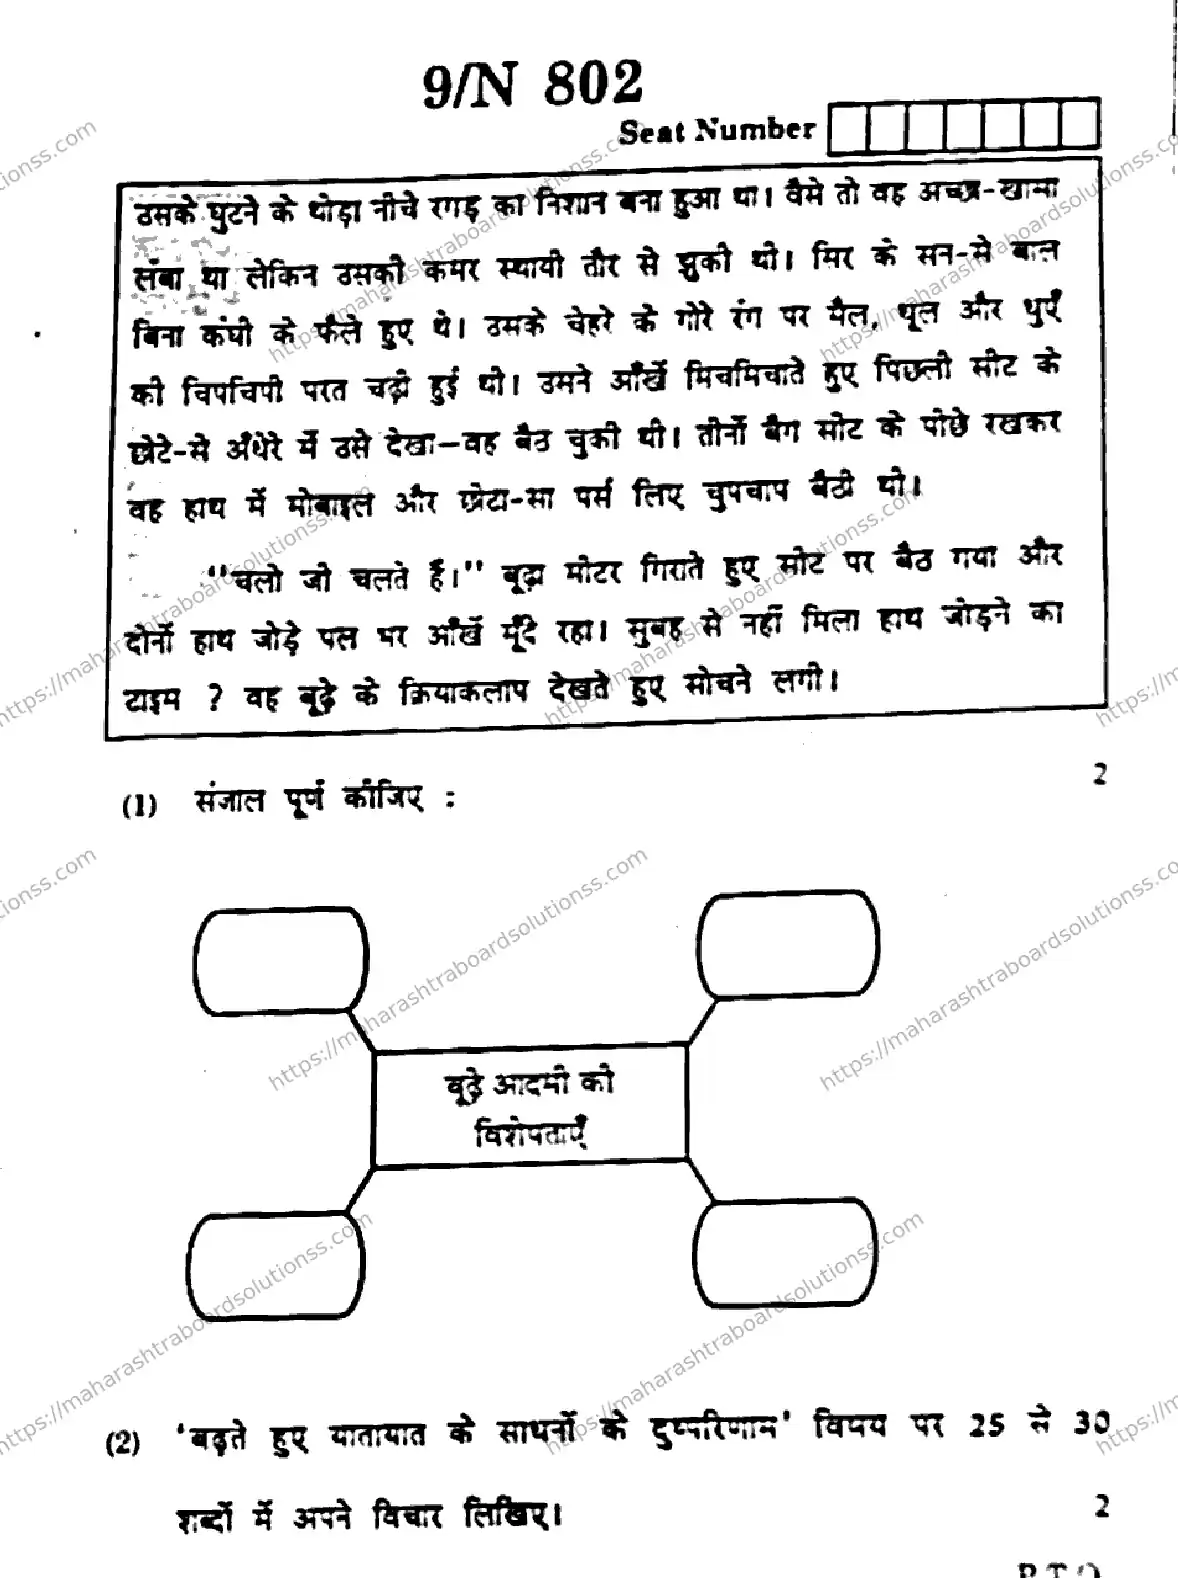 9/N 802
Seat Number
उसके घुटने के थोड़ा नीचे रगड़ का निशान बना हुआ था। वैसे तो वह अच्छा-खासा
लंबा था लेकिन उसकी कमर स्थायी तौर से झुकी थी। सिर के सन-से बाल
बिना कंघी के फैले हुए थे। उसके चेहरे के गोरे रंग पर मैल, धूल और धुएँ
की चिपचिपी परत चढ़ी हुई थी। उसने आँखें मिचमिचाते हुए पिछली सीट के
छोटे-से अँधेरे में उसे देखा—वह बैठ चुकी थी। तीनों बैग सीट के पीछे रखकर
वह हाथ में मोबाइल और छोटा-सा पर्स लिए चुपचाप बैठी थी।
"चलो जी चलते हैं।" बूढ़ा मीटर गिराते हुए सीट पर बैठ गया और
दोनों हाथ जोड़े पल भर आँखें मूँदे रहा। सुबह से नहीं मिला हाथ जोड़ने का
टाइम ? वह बूढ़े के क्रियाकलाप देखते हुए सोचने लगी।
(1) संजाल पूर्ण कीजिए : 2
बूढ़े आदमी की
विशेषताएँ
(2) 'बढ़ते हुए यातायात के साधनों के दुष्परिणाम' विषय पर 25 से 30
शब्दों में अपने विचार लिखिए। 2
P.T.O
https://maharashtraboardsolutionss.com